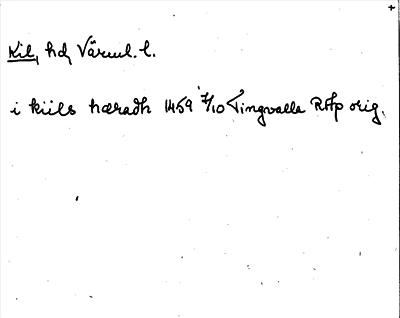 Kil, hd, Värml. l.
i kiils hæradh 1459 7/10 Tingvalla RAp orig.